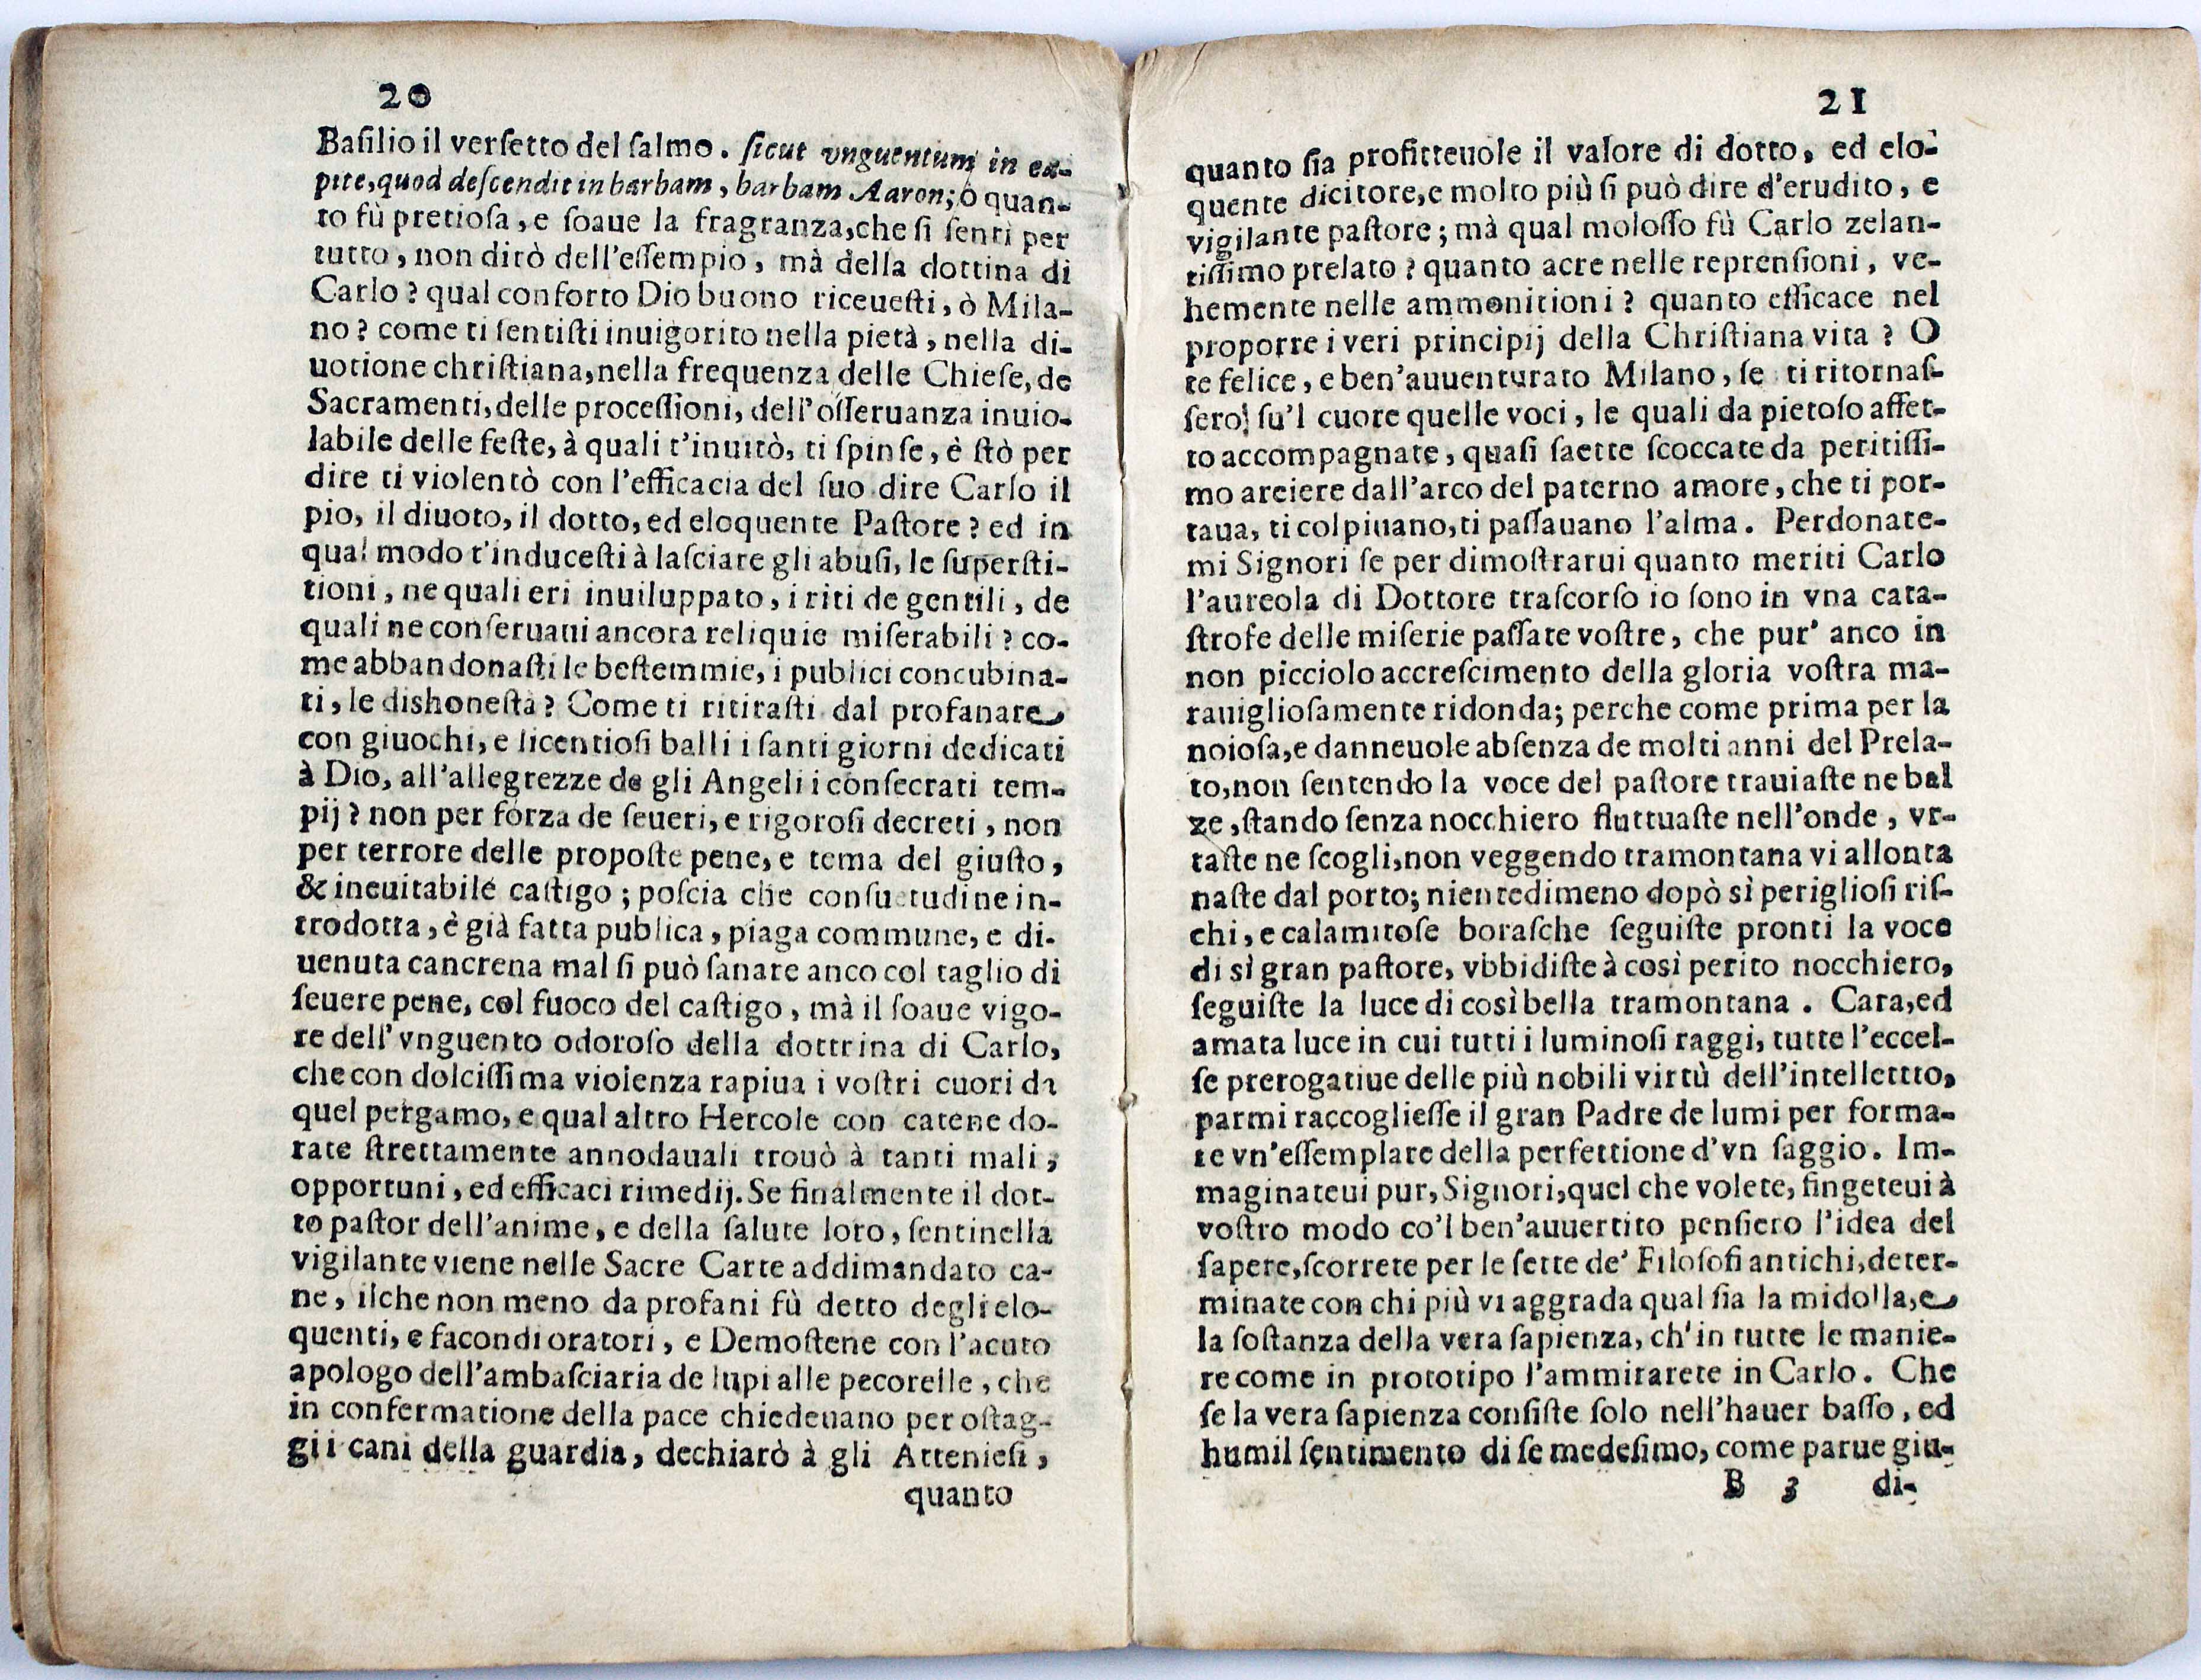 20
Baſilio il verſetto del ſalmo. ſicut vnguentum in ca-
pite, quod deſcendit in barbam, barbam Aaron; ò quan-
to fù pretioſa, e ſoaue la fragranza, che ſi ſentì per
tutto, non dirò dell'eſſempio, mà della dottina di
Carlo? qual conforto Dio buono riceueſti, ò Mila-
no? come ti ſentiſti inuigorito nella pietà, nella di-
uotione chriſtiana, nella frequenza delle Chieſe, de
Sacramenti, delle proceſſioni, dell'oſſeruanza inuio-
labile delle feſte, à quali t'inuitò, ti ſpinſe, è ſtò per
dire ti violentò con l'efficacia del ſuo dire Carlo il
pio, il diuoto, il dotto, ed eloquente Paſtore? ed in
qual modo t'induceſti à laſciare gli abuſi, le ſuperſti-
tioni, ne quali eri inuiluppato, i riti de gentili, de
quali ne conſeruaui ancora reliquie miſerabili? co-
me abbandonaſti le beſtemmie, i publici concubina-
ti, le dishoneſtà? Come ti ritiraſti dal profanare
con giuochi, e licentioſi balli i ſanti giorni dedicati
à Dio, all'allegrezze de gli Angeli i conſecrati tem-
pij? non per forza de ſeueri, e rigoroſi decreti, non
per terrore delle propoſte pene, e tema del giuſto,
& ineuitabile caſtigo; poſcia che conſuetudine in-
trodotta, è già fatta publica, piaga commune, e di-
uenuta cancrena mal ſi può ſanare anco col taglio di
ſeuere pene, col fuoco del caſtigo, mà il ſoaue vigo-
re dell'vnguento odoroſo della dottrina di Carlo,
che con dolciſſima violenza rapiua i voſtri cuori da
quel pergamo, e qual altro Hercole con catene do-
rate ſtrettamente annodauali trouò à tanti mali,
opportuni, ed efficaci rimedij. Se finalmente il dot-
to paſtor dell'anime, e della ſalute loro, ſentinella
vigilante viene nelle Sacre Carte addimandato ca-
ne, ilche non meno da profani fù detto degli elo-
quenti, e facondi oratori, e Demoſtene con l'acuto
apologo dell'ambaſciaria de lupi alle pecorelle, che
in confermatione della pace chiedeuano per oſtag-
gi i cani della guardia, dechiarò à gli Attenieſi,
quanto
21
quanto ſia profitteuole il valore di dotto, ed elo-
quente dicitore, e molto più ſi può dire d'erudito, e
vigilante paſtore; mà qual moloſſo fù Carlo zelan-
tiſſimo prelato? quanto acre nelle reprenſioni, ve-
hemente nelle ammonitioni? quanto efficace nel
proporre i veri principij della Chriſtiana vita? O
te felice, e ben'auuenturato Milano, ſe ti ritornaſ-
ſero ſu'l cuore quelle voci, le quali da pietoſo affet-
to accompagnate, quaſi ſaette ſcoccate da peritiſſi-
mo arciere dall'arco del paterno amore, che ti por-
taua, ti colpiuano, ti paſſauano l'alma. Perdonate-
mi Signori ſe per dimoſtrarui quanto meriti Carlo
l'aureola di Dottore traſcorſo io ſono in vna cata-
ſtrofe delle miſerie paſſate voſtre, che pur' anco in
non picciolo accreſcimento della gloria voſtra ma-
rauiglioſamente ridonda; perche come prima per la
noioſa, e danneuole abſenza de molti anni del Prela-
to, non ſentendo la voce del paſtore trauiaſte ne bal
ze, ſtando ſenza nocchiero fluttuaſte nell'onde, vr-
taſte ne ſcogli, non veggendo tramontana vi allonta
naſte dal porto; nientedimeno dopò sì periglioſi riſ-
chi, e calamitoſe boraſche ſeguiſte pronti la voce
di sì gran paſtore, vbbidiſte à così perito nocchiero,
ſeguiſte la luce di così bella tramontana. Cara, ed
amata luce in cui tutti i luminoſi raggi, tutte l'eccel-
ſe prerogatiue delle più nobili virtù dell'intellettto,
parmi raccoglieſſe il gran Padre de lumi per forma-
re vn'eſſemplare della perfettione d'vn ſaggio. Im-
maginateui pur, Signori, quel che volete, fingeteui à
voſtro modo co'l ben'auuertito penſiero l'idea del
ſapere, ſcorrete per le ſette de' Filoſofi antichi, deter-
minate con chi più vi aggrada qual ſia la midolla, e
la ſoſtanza della vera ſapienza, ch'in tutte le manie-
re come in prototipo l'ammirarete in Carlo. Che
ſe la vera ſapienza conſiſte ſolo nell'hauer baſſo, ed
humil ſentimento di ſe medeſimo, come parue giu-
B 3 di-